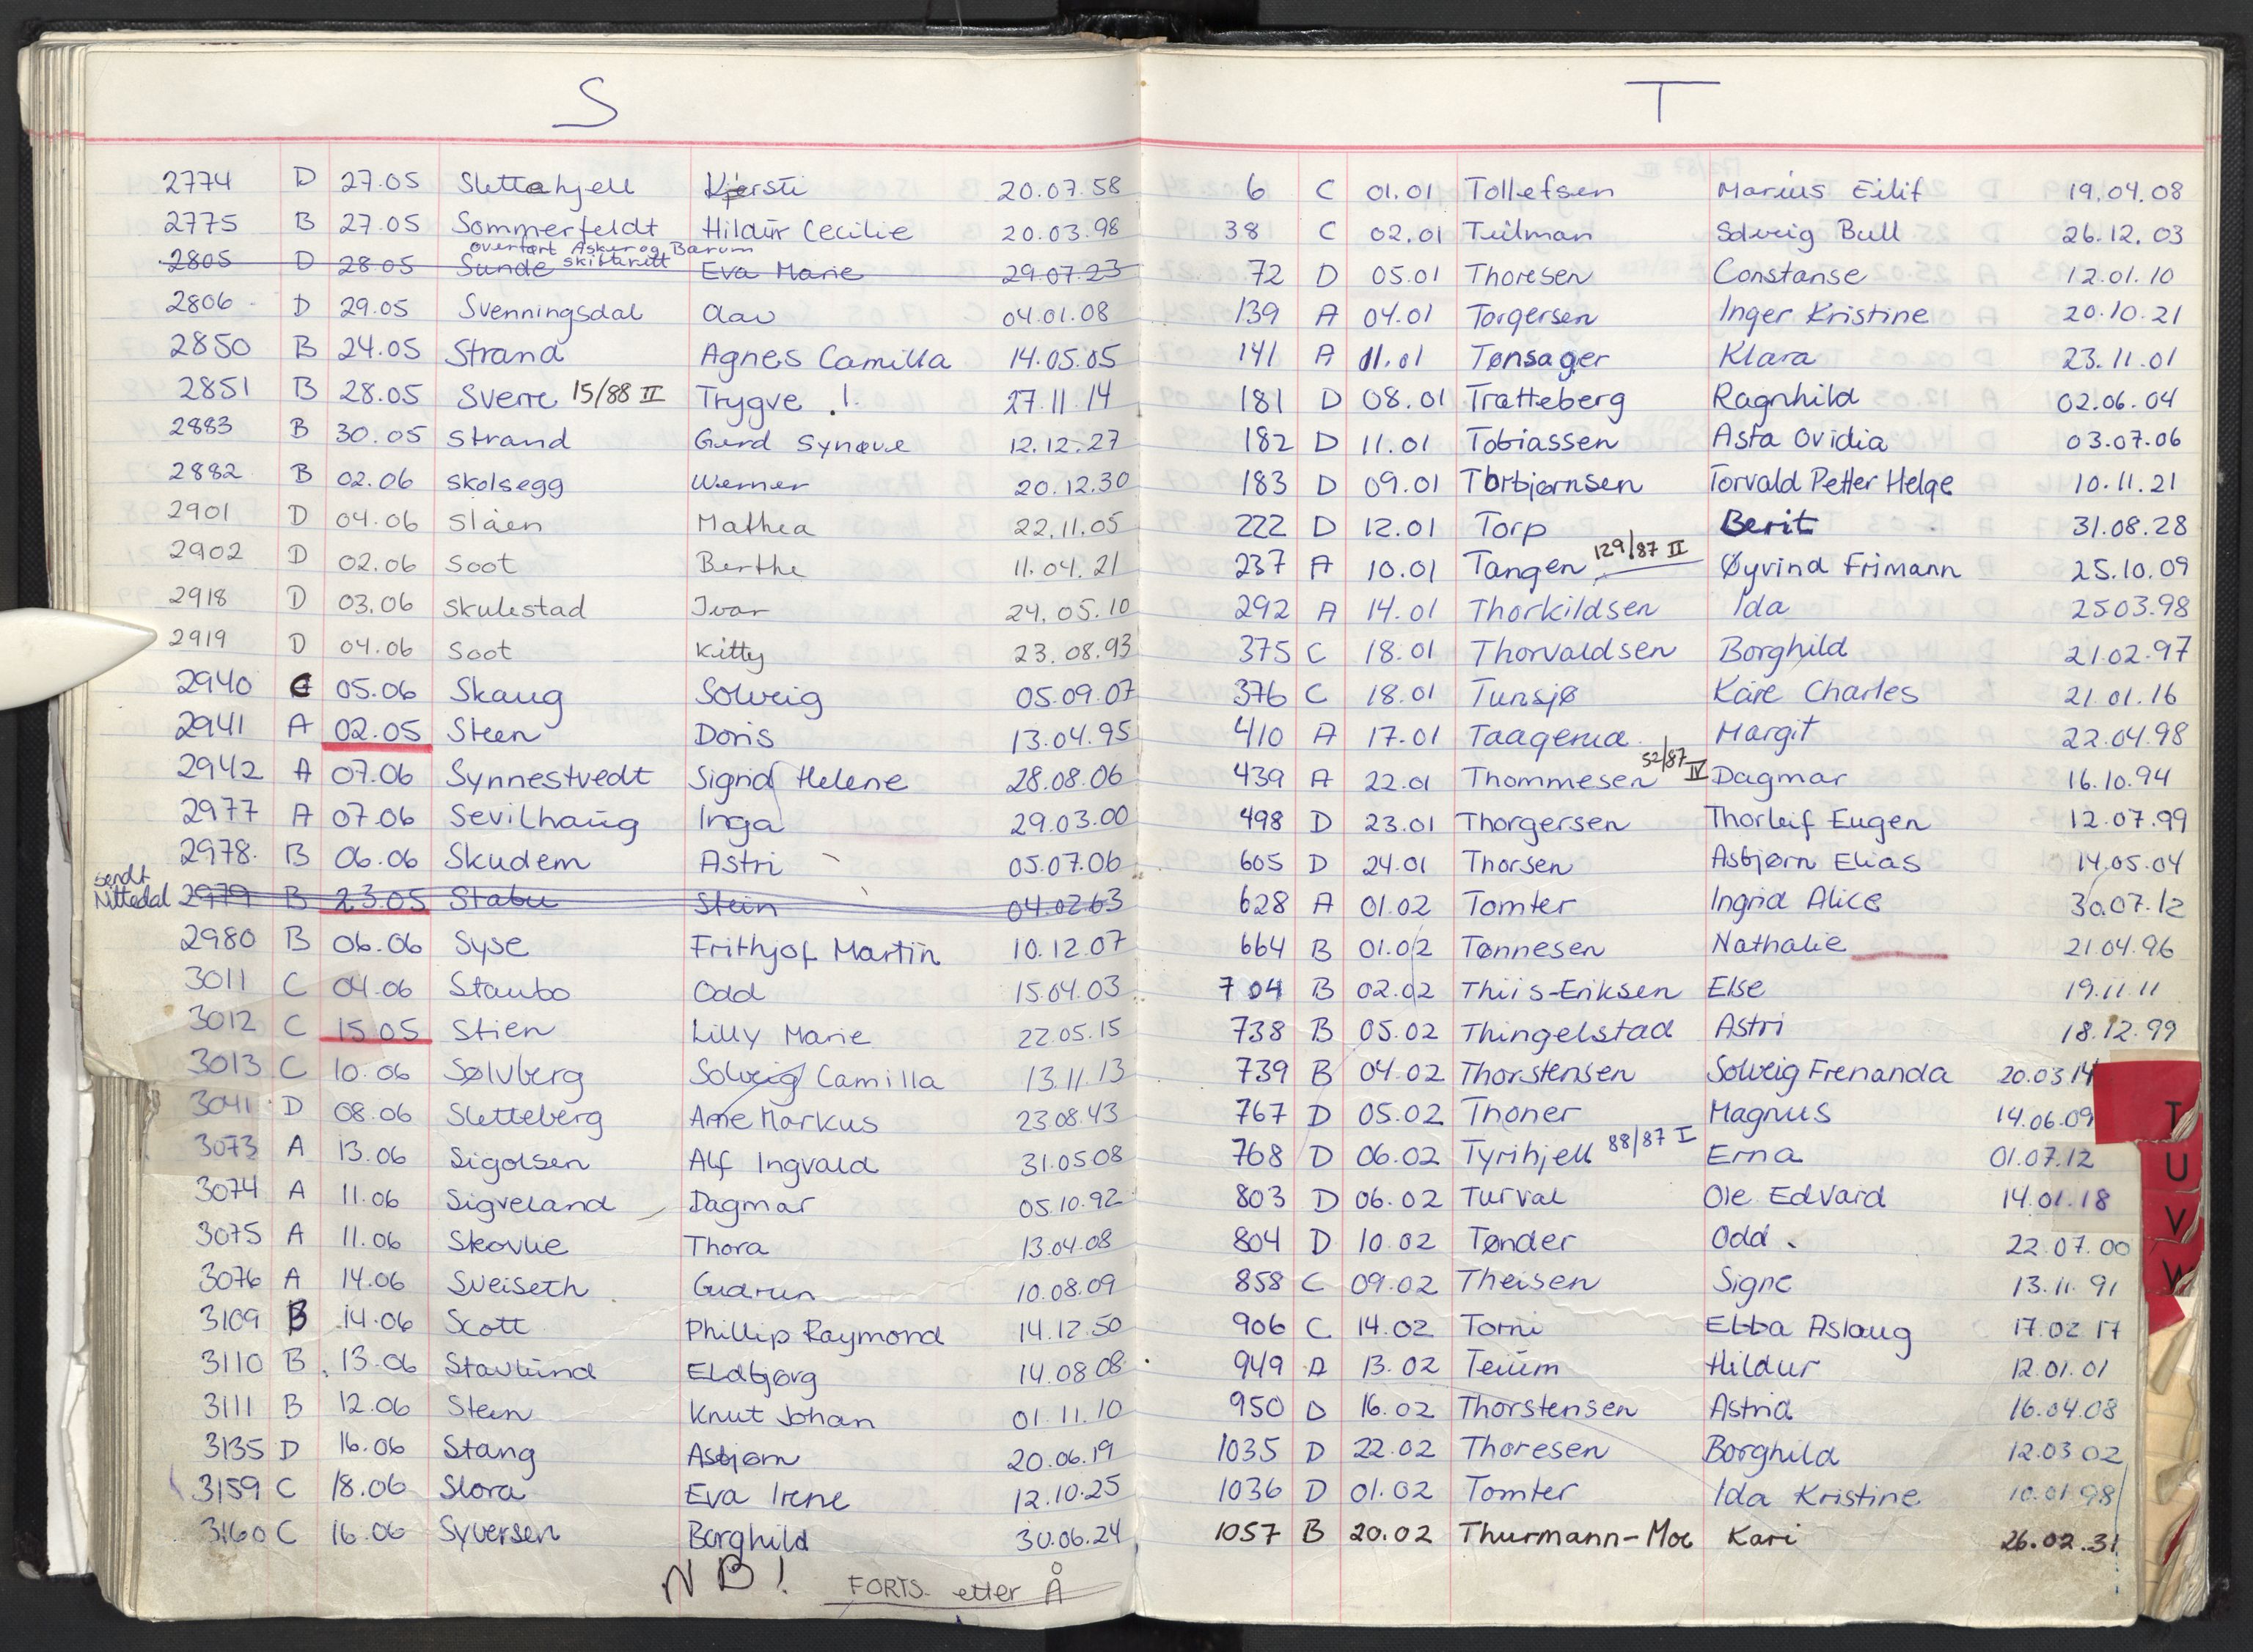 S
2774 D 27.05 Slettahjell Kjersti 20.07.58
2775 B 27.05 Sommerfeldt Hildur Cecilie 20.03.98
overført Asker og Bærum
skifterett
2805 D 28.05 Sunde Eva Marie 29.07.23
2806 D 29.05 Svenningsdal Olav 04.01.08
2850 B 24.05 Strand Agnes Camilla 14.05.05
2851 B 28.05 Sverre 15/88 II Trygve . ! 27.11.14
2883 B 30.05 Strand Gerd Synøve 12.12.27
2882 B 02.06 Skolsegg Werner 20.12.30
2901 D 04.06 Slåen Mathea 22.11.05
2902 D 02.06 Soot Berthe 11.04.21
2918 D 03.06 Skulestad Ivar 24.05.10
2919 D 04.06 Soot Kitty 23.08.93
2940 C 05.06 Skaug Solveig 05.09.07
2941 A 02.05 Steen Doris 13.04.95
2942 A 07.06 Synnestvedt Sigrid Helene 28.08.06
2977 A 07.06 Sevilhaug Inga 29.03.00
2978. B 06.06 Skudem Astri 05.07.06
sendt
Nittedal 2979 B 23.05 Stabu Stein 04.02.63
2980 B 06.06 Syse Frithjof Martin 10.12.07
3011 C 04.06 Staubo Odd 15.04.03
3012 C 15.05 Stien Lilly Marie 22.05.15
3013 C 10.06 Sølvberg Solveig Camilla 13.11.13
3041 D 08.06 Sletteberg Arne Markus 23.08.43
3073 A 13.06 Sigolsen Alf Ingvald 31.05.08
3074 A 11.06 Sigveland Dagmar 05.10.92
3075 A 11.06 Skovlie Thora 13.04.08
3076 A 14.06 Sveiseth Gudrun 10.08.09
3109 B 14.06 Scott Phillip Raymond 14.12.50
3110 B 13.06 Stavlund Eldbjørg 14.08.08
3111 B 12.06 Steen Knut Johan 01.11.10
3135 D 16.06 Stang Asbjørn 20.06.19
3159 C 18.06 Slora Eva Irene 12.10.25
3160 C 16.06 Syversen Borghild 30.06.24
NB! FORTS. etter Å
T
6 C 01.01 Tollefsen Marius Eilif 19.04.08
38 C 02.01 Tuilman Solveig Bull 26.12.03
72 D 05.01 Thoresen Constanse 12.01.10
139 A 04.01 Torgersen Inger Kristine 20.10.21
141 A 11.01 Tønsager Klara 23.11.01
181 D 08.01 Trætteberg Ragnhild 02.06.04
182 D 11.01 Tobiassen Asta Ovidia 03.07.06
183 D 09.01 Torbjørnsen Torvald Petter Helge 10.11.21
222 D 12.01 Torp Berit 31.08.28
237 A 10.01 Tangen 129/87 II Øyvind Frimann 25.10.09
292 A 14.01 Thorkildsen Ida 25.03.98
375 C 18.01 Thorvaldsen Borghild 21.02.97
376 C 18.01 Tunsjø Kåre Charles 21.01.16
410 A 17.01 Taagerud Margit 22.04.98
439 A 22.01 Thommesen 52/87 IV Dagmar 16.10.94
498 D 23.01 Thorgersen Thorleif Eugen 12.07.99
605 D 24.01 Thorsen Asbjørn Elias 14.05.04
628 A 01.02 Tomter Ingrid Alice 30.07.12
664 B 01.02 Tønnesen Nathalie 21.04.96
704 B 02.02 Thiis-Eriksen Else 19.11.11
738 B 05.02 Thingelstad Astri 18.12.99
739 B 04.02 Thorstensen Solveig Frenanda 20.03.14
767 D 05.02 Thoner Magnus 14.06.09
768 D 06.02 Tyrihjell 88/87 I Erna 01.07.12
803 D 06.02 Turval Ole Edvard 14.01.18
804 D 10.02 Tønder Odd 22.07.00
858 C 09.02 Theisen Signe 13.11.91
906 C 14.02 Torni Ebba Aslaug 17.02.17
949 A 13.02 Teium Hildur 12.01.01
950 D 16.02 Thorstensen Astrid 16.04.08
1035 D 22.02 Thoresen Borghild 12.03.02
1036 D 01.02 Tomter Ida Kristine 10.01.98
1057 B 20.02 Thurmann-Moe Kari 26.02.31
T
U
V
W